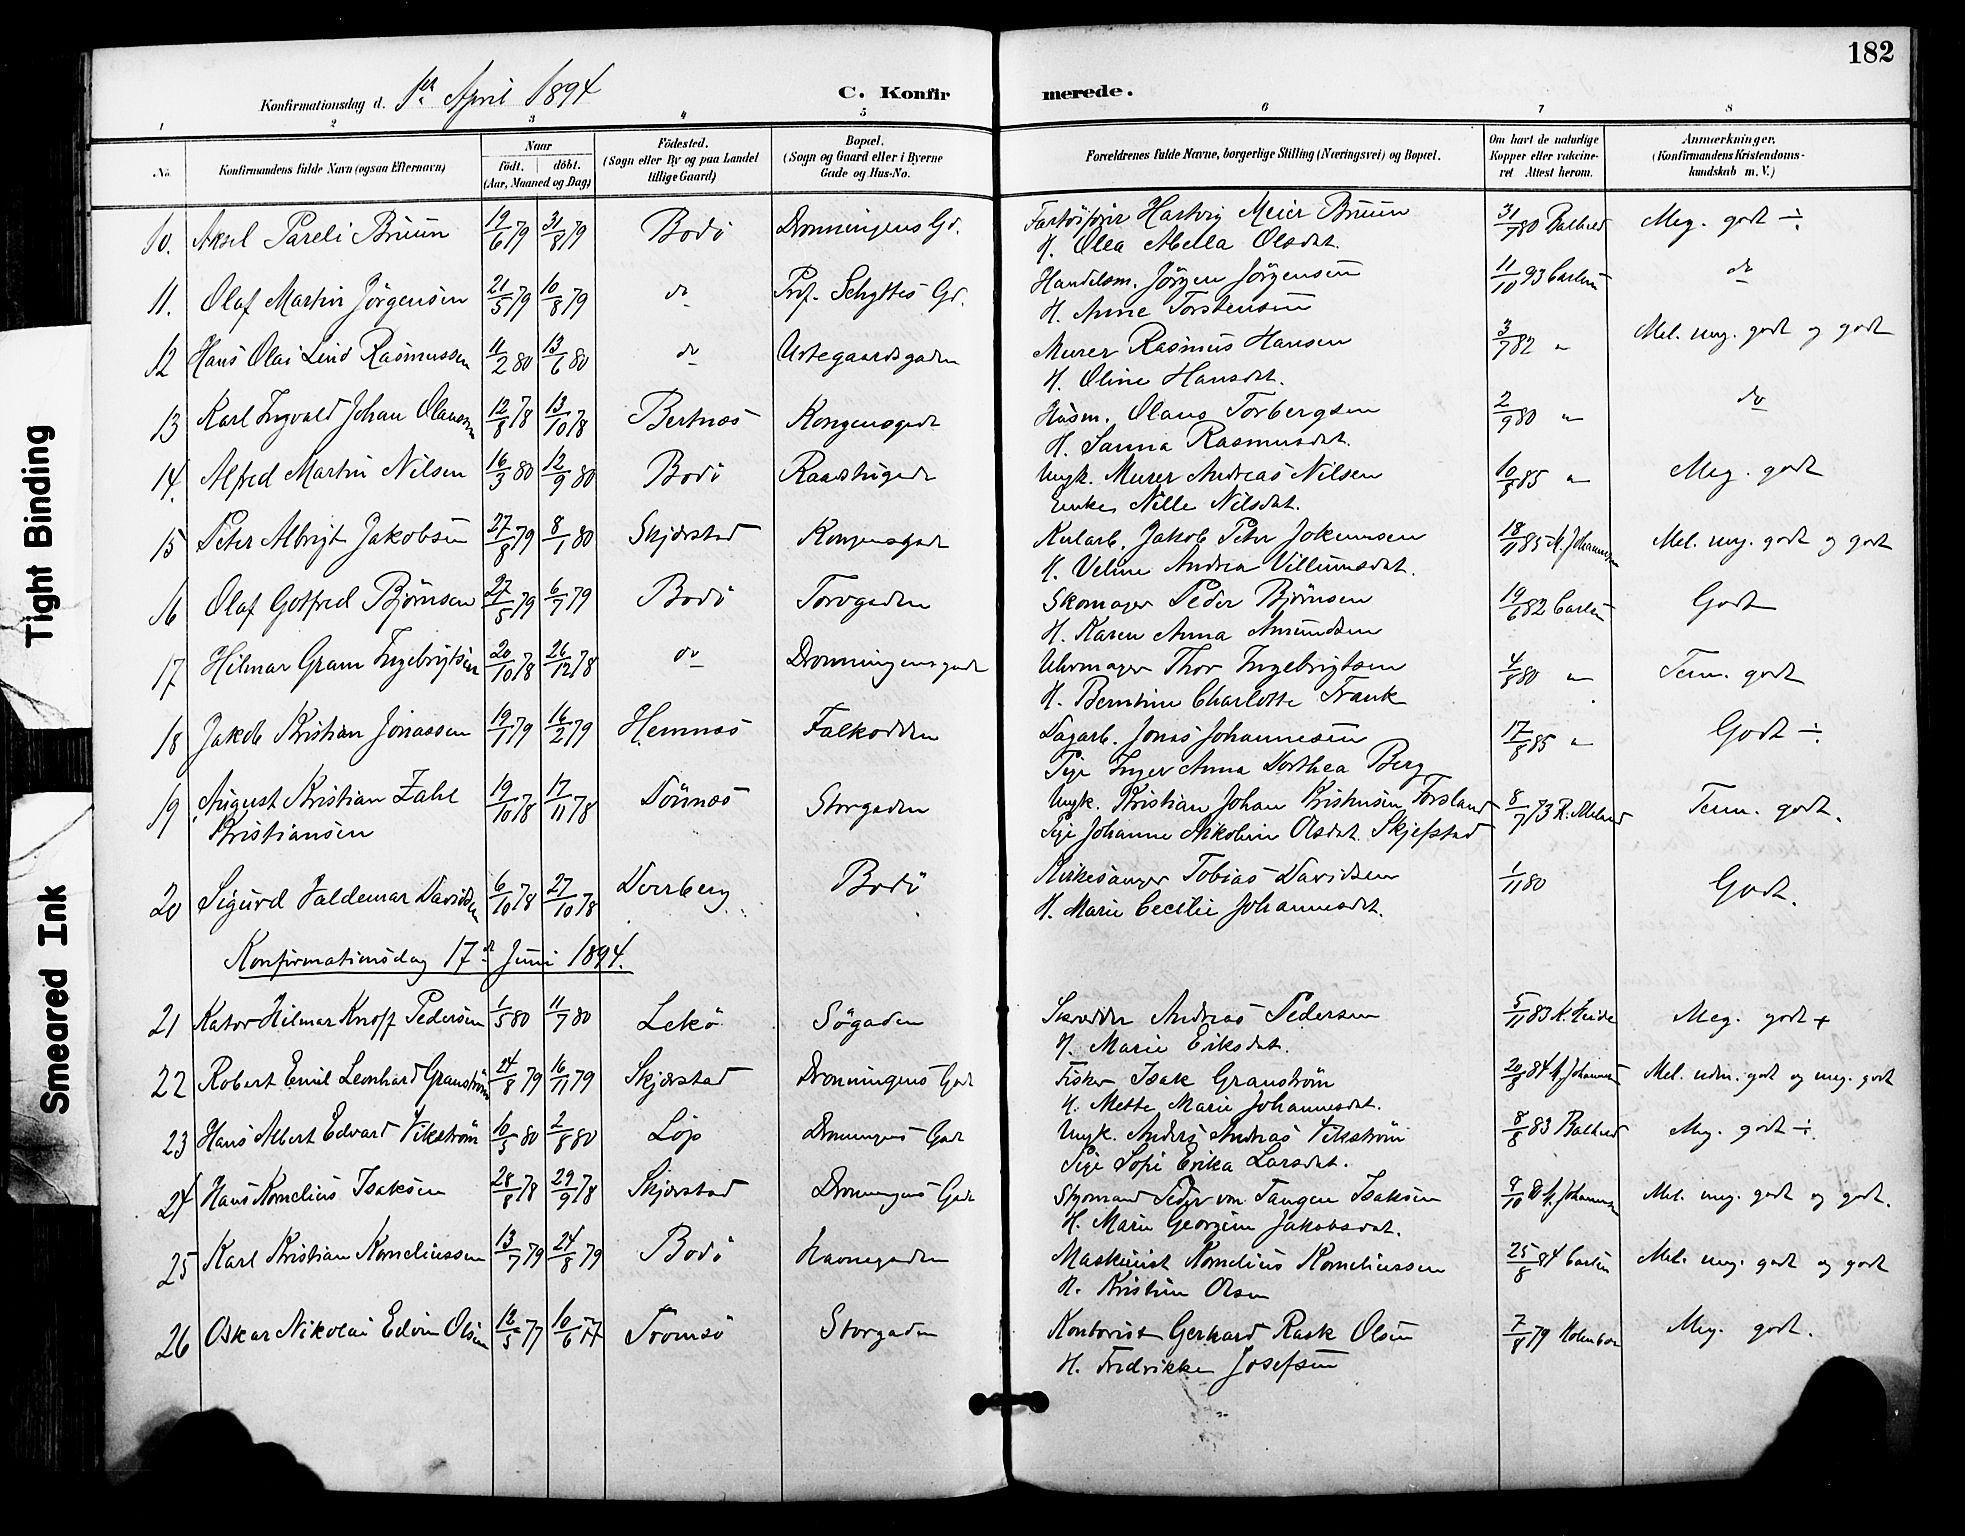 182
Konfirmationsdag d. 1ste April 1894 C. Konfirmerede.
1 2 3 4 5 6 7 8
No. Konfirmandens fulde Navn (ogsaa Efternavn) Naar født. døbt. (Aar, Maaned og Dag) Födested. (Sogn eller By og paa Landet tillige Gaard) Bopæl. (Sogn og Gaard eller i Byerne Gade og Hus-No. Forældrenes fulde Navne, borgerlige Stilling (Næringsvei) og Bopæl. Om havt de naturlige Kopper eller vakcineret Attest herom. Anmærkninger. (Konfirmandens Kristendomskundskab m. V.)
10. Aksel Pareli Bruun 19/6 79 31/8 79 Bodö Dronningens Gd. Hartvig Meier Bruun 31/7 80 Meg. godt ÷
H. Olea Abella Olsdat.
11. Olaf Martin Jörgensen 21/5 79 10/8 79 do Prof. Schyttes Gd. Handelsm. Jörgen Jörgensen 11/10 93 do
H. Anne Torstensen
12 Hans Olai Lind Rasmussen 11/2 80 13/6 80 do Murer Rasmus Hansen 3/7 82 " Mel. meg. godt og godt
H. Oline Hansdat.
13 Karl Ingvald Johan Olaussen 12/8 78 13/10 78 Bertnæs Kongensgade Husm. Olaus Torbergsen 2/9 80 " do
H. Sanna Rasmusdat.
14. Alfred Martin Nilsen 16/3 80 12/9 80 Bodö Raadhusgade Ungk. Murer Andreas Nilsen 10/8 85 " Meg. godt
Enke Nille Nilsdat.
15 Peter Albrigt Jakobsen 27/8 79 8/1 80 Skjærstad Kongensgade Kularb. Jakob Peter Jokumsen 18/11 85 Mel. meg. godt og godt
H. Veline Andrea Villumsdat.
16 Olaf Gotfred Björnsen 27/5 79 6/7 79 Bodö Torvgaden Skomager Peder Björnsen 19/6 82 Godt
H. Karen Anna Amundsen
17 Hilmar Gram Ingebrigtsen 20/10 78 26/12 78 do Dronningensgade Uhrmager Thor Ingebrigtsen 4/8 80 " Tem. godt
H. Berntine Charlotte Frank
18 Jakob Kristian Jonassen 19/1 79 16/2 79 Hemnæs Falkodden Dagarb. Jonas Johannesen 17/8 85 " Godt ÷
Pige Inger Anna Dorthea Berg
19 August Kristian Zahl 19/10 78 17/11 78 Dönnæs Storgaden Ungk. Kristian Johan Kristensen Forsland 8/7 Tem. godt.
Kristiansen Pige Johanne Nikoline Olsdat. Skjefstad
20 Sigurd Valdemar Davidsen 6/10 78 27/10 78 Dverberg Bodö Kirkesanger Tobias Davidsen 1/11 80 Godt.
H. Marie Cecilie Johannesdat.
Konfirmationsdag 17de Juni 1894.
21 Kator Hilmar Knoff Pedersen 1/5 80 11/7 80 Lekö Sögaden Skrædder Andreas Pedersen 5/11 83 Meg. godt +
H. Marie Eriksdat.
22 Robert Emil Leonhard Granström 24/8 79 16/11 79 Skjærstad Dronningens Gade Fisker Isak Granström 20/8 84 Mel. udm. godt og meg. godt
H. Mette Marie Johannesdat.
23 Hans Albert Edvard Vikström 10/5 80 2/8 80 Löp Dronningens Gade Ungk. Anders Andreas Vikström 8/8 83 Meg. godt ÷
Pige Sofie Erika Larsdat.
24 Hans Kornelius Isaksen 28/8 78 29/9 78 Skjærstad Dronningens Gade Styrmand Peder von Tangen Isaksen Mel. meg. godt og godt.
H. Marie Georgine Jakobsdat.
25 Karl Kristian Korneliussen 13/7 79 24/8 79 Bodö Havnegaden Maskinist Kornelius Korneliussen 25/8 84 Mel. meg. godt og godt
H. Kristine Olsen
26 Oskar Nikolai Edvin Olsen 12/5 77 10/6 77 Tromsö Storgaden Kontorist Gerhard Rask Olsen 7/8 79 Meg. godt.
H. Fredrikke Josefsen
Tight Binding
Smeared Ink